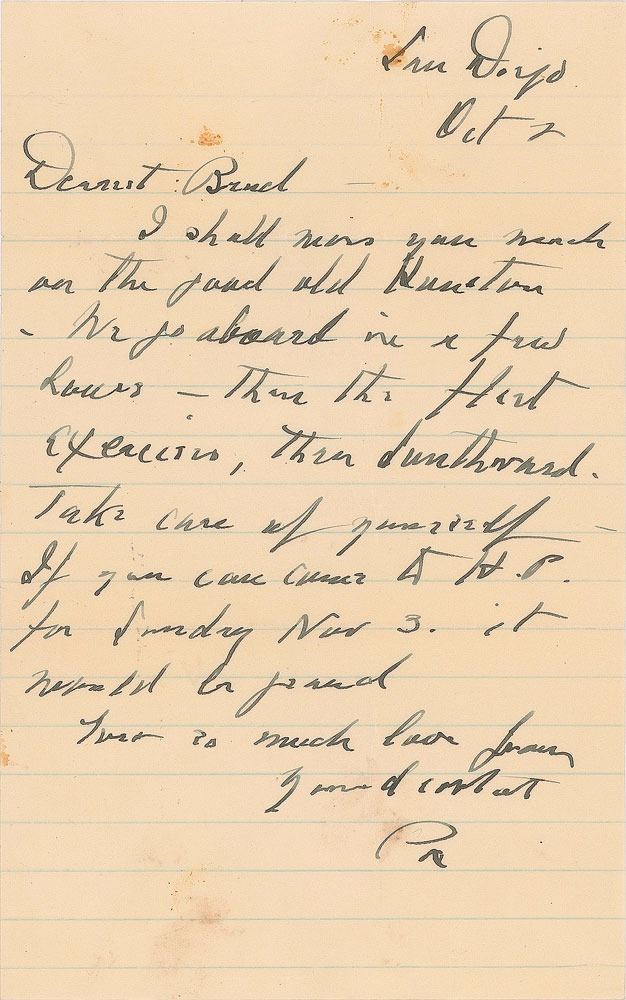 San Diego
Oct 2
Dearest Brud —
I shall miss you much
on the good old Houston
- We go aboard in a few
hours — then the Fleet
Exercises, then Southward.
Take care of yourself —
If you can come to H.P.
for Sunday Nov 3. it
would be grand
Ever so much love from
Your
Pa